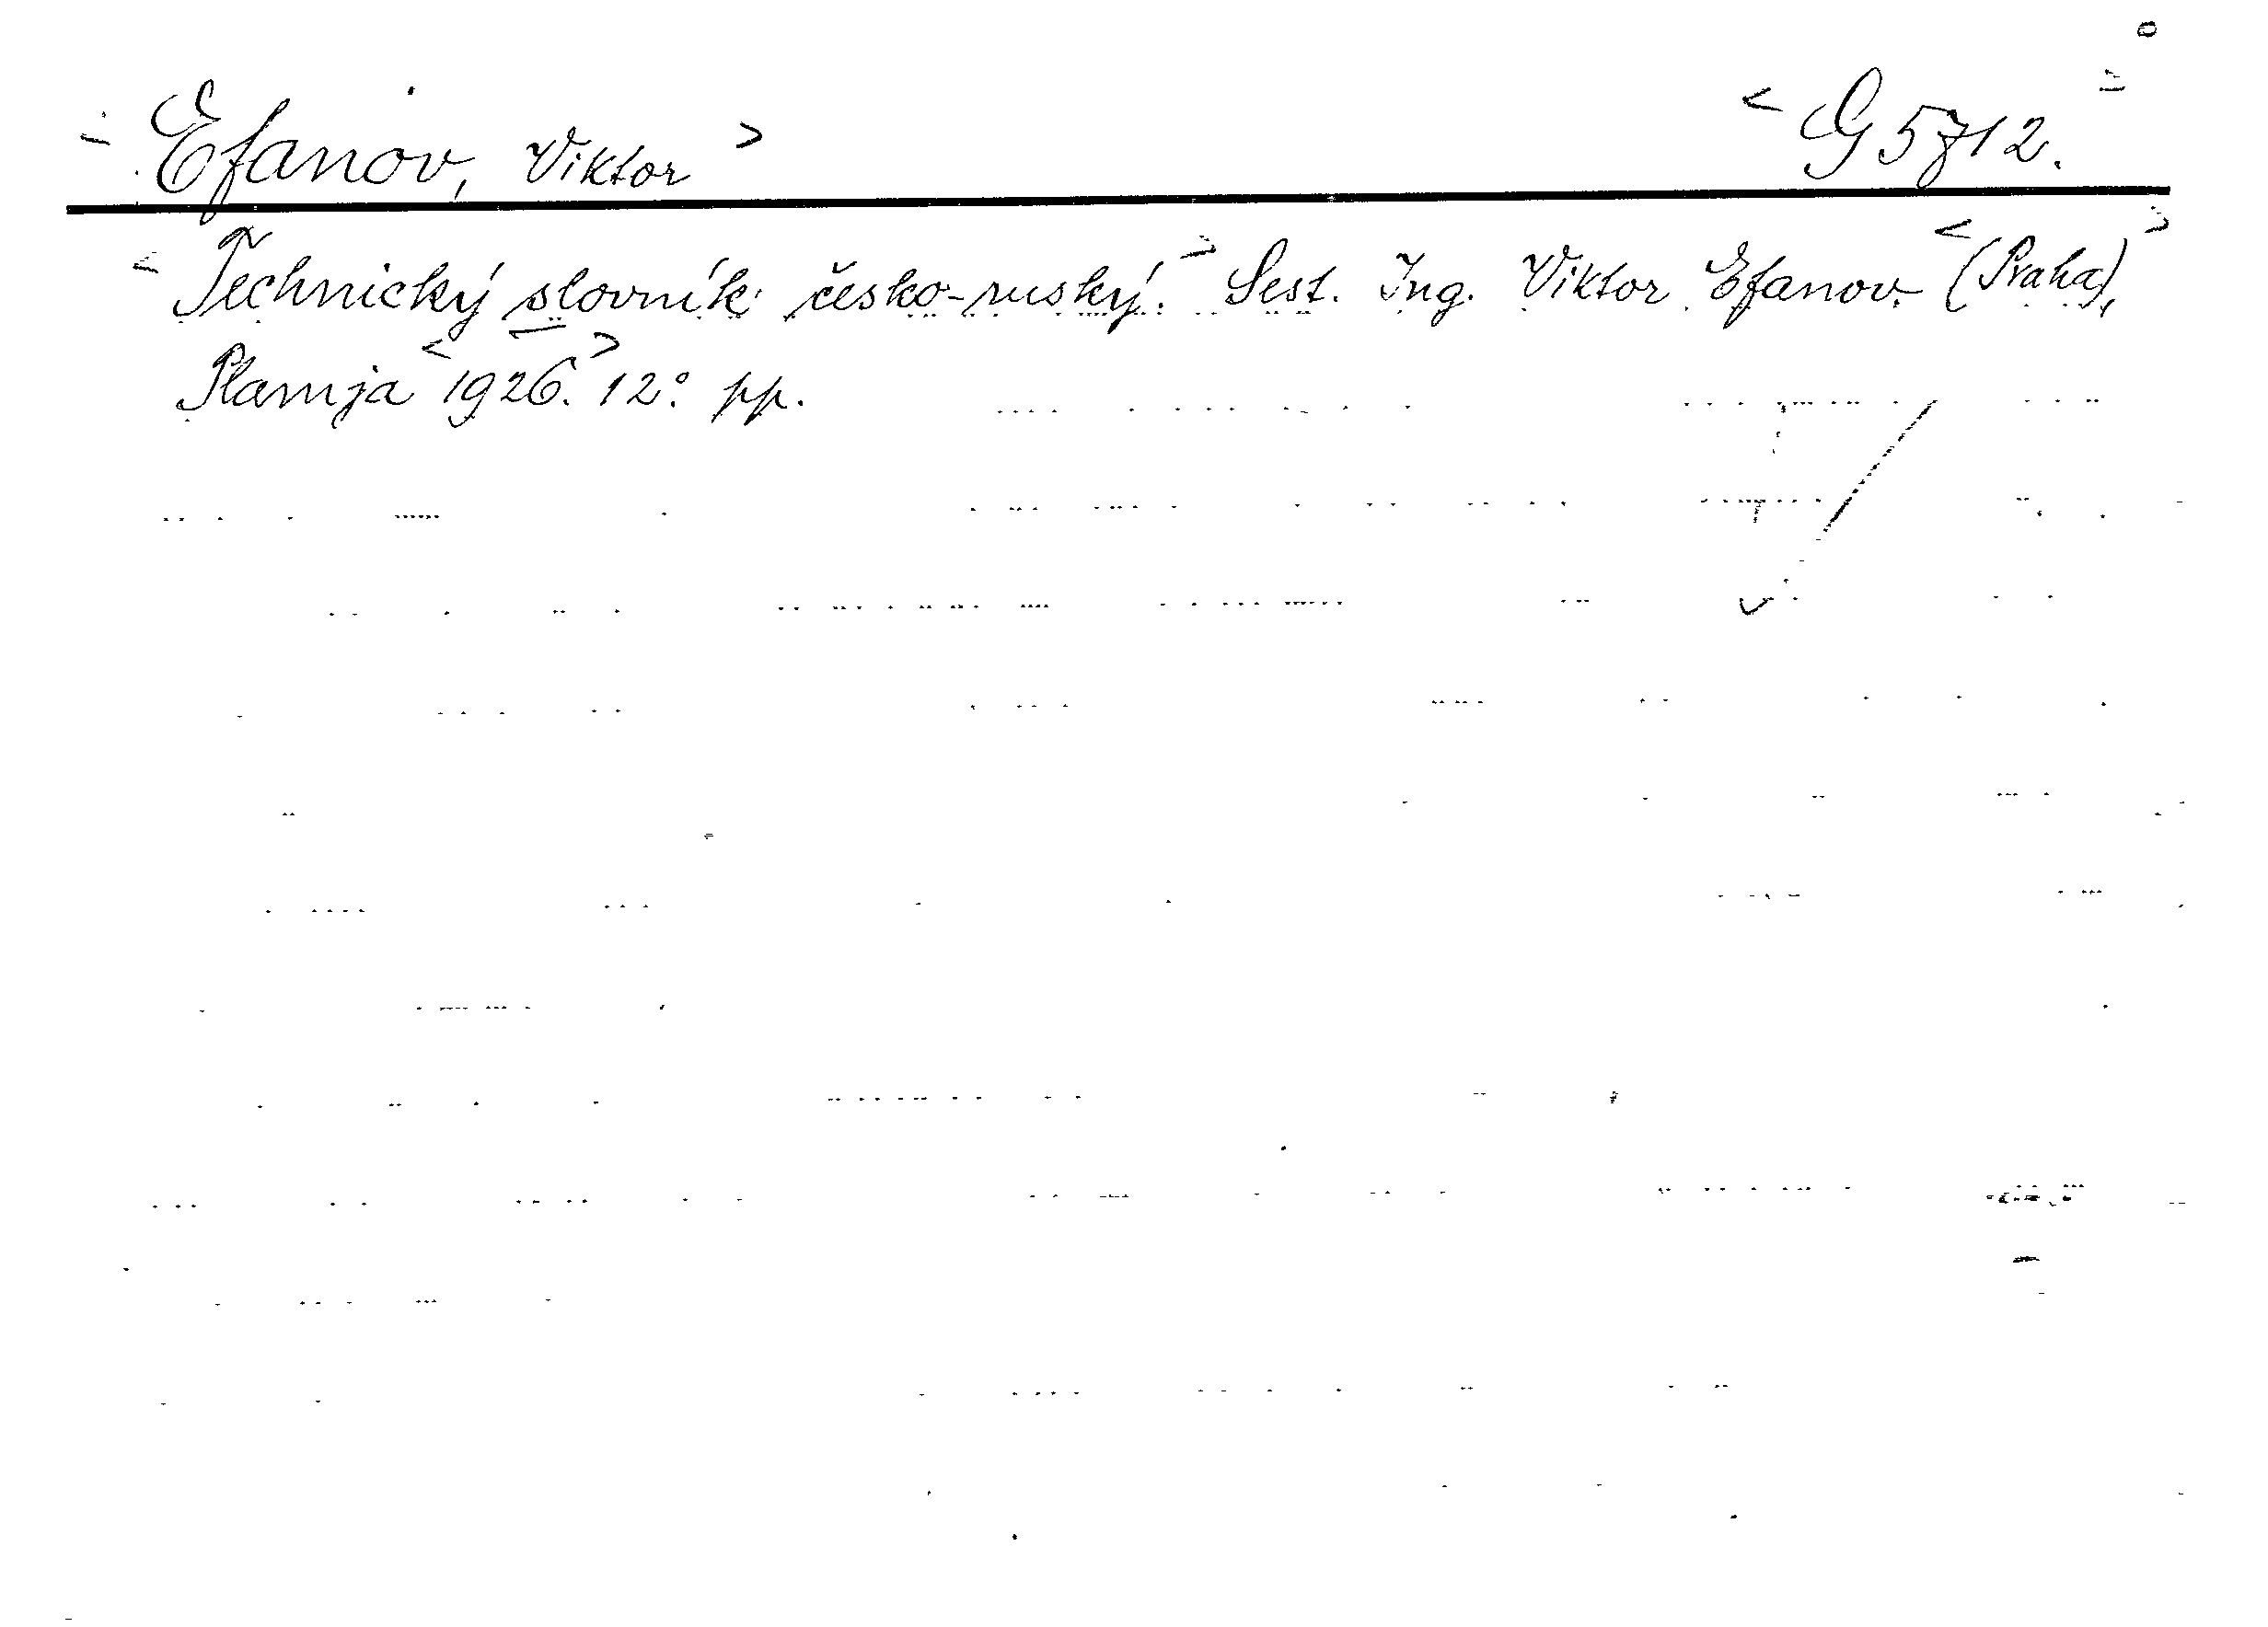 <Efanov, Viktor> <G 5712.>
<Technický slovník česko-ruský.> Sest. Ing. Viktor Efanov. <(Praha),>
Plamja <1926.> 12° pp.